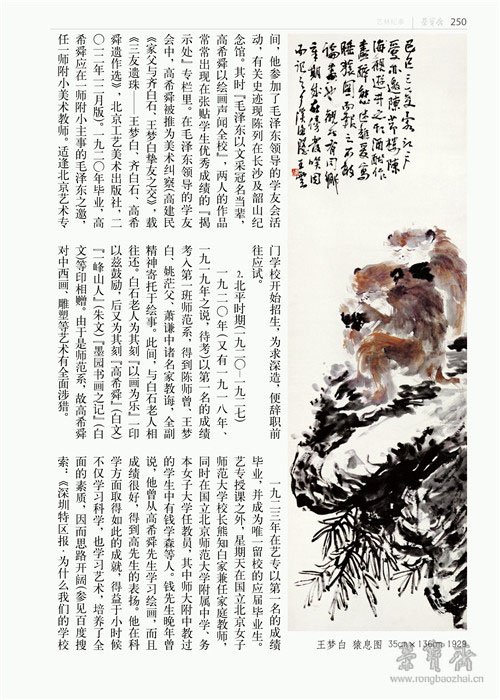 荣宝斋 250
间，他参加了毛泽东领导的学友会活
动，有关史迹现陈列在长沙及韶山纪
念馆。其时『毛泽东以文采冠名当辈，
高希舜以绘画声闻全校』，两人的作品
常常出现在张贴学生优秀成绩的『揭
示处』专栏里。在毛泽东领导的学友
会中，高希舜被推为美术纠察（高建民
《家父与齐白石、王梦白挚友之交》，载
《三友遗珠——王梦白、齐白石、高希
舜遗作选》，北京工艺美术出版社，二
〇一二年一二月版）。一九二〇年毕业，高
希舜应在一师附小主事的毛泽东之邀，
任一师附小美术教师。适逢北京艺术专
门学校开始招生，为求深造，便辞职前
往应试。
2.北平时期（一九二〇—一九二七）
一九二〇年（又有一九一八年、
一九一九年之说，待考）以第一名的成绩
考入第一班师范系，得到陈师曾、王梦
白、姚茫父、萧谦中诸名家教诲，全副
精神寄托于绘事。此间，与白石老人相
往还。白石老人为其刻『以画为乐』一印
以兹鼓励，后又为其刻『高希舜』（白文）
『一峰山人』（朱文）『墨园书画之记』（白
文）等印相赠。由于是师范系，故高希舜
对中西画、雕塑等艺术有全面涉猎。
一九二三年在艺专以第一名的成绩
毕业，并成为唯一留校的应届毕业生。
艺专授课之外，星期天在国立北京女子
师范大学校长熊知白家兼任家庭教师，
同时在国立北京师范大学附属中学、务
本女子大学任教员，其中师大附中教过
的学生中有钱学森等人。钱先生晚年曾
说，他曾从高希舜先生学习绘画，而且
成绩很好，得到高先生的表扬。他在科
学方面取得如此的成就，得益于小时候
不仅学习科学，也学习艺术，培养了全
面的素质，因而思路开阔（参见百度搜
索：《深圳特区报·为什么我们的学校
王梦白 猿息图 35cm×136cm 1929
荣宝斋
www.rongbaozhai.cn